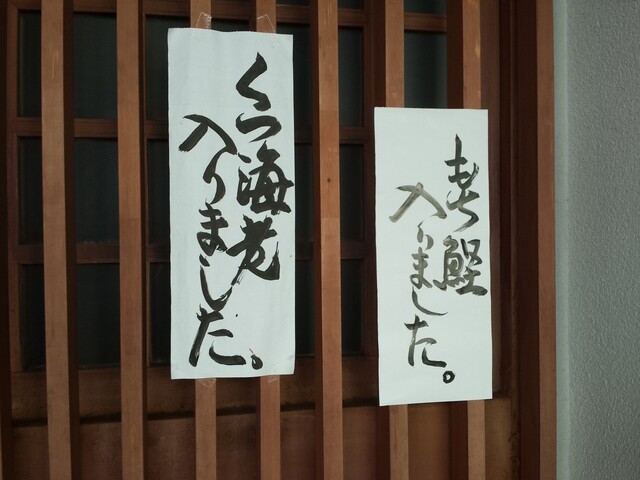 もち鰹
入りました。
くつ海老
入りました。